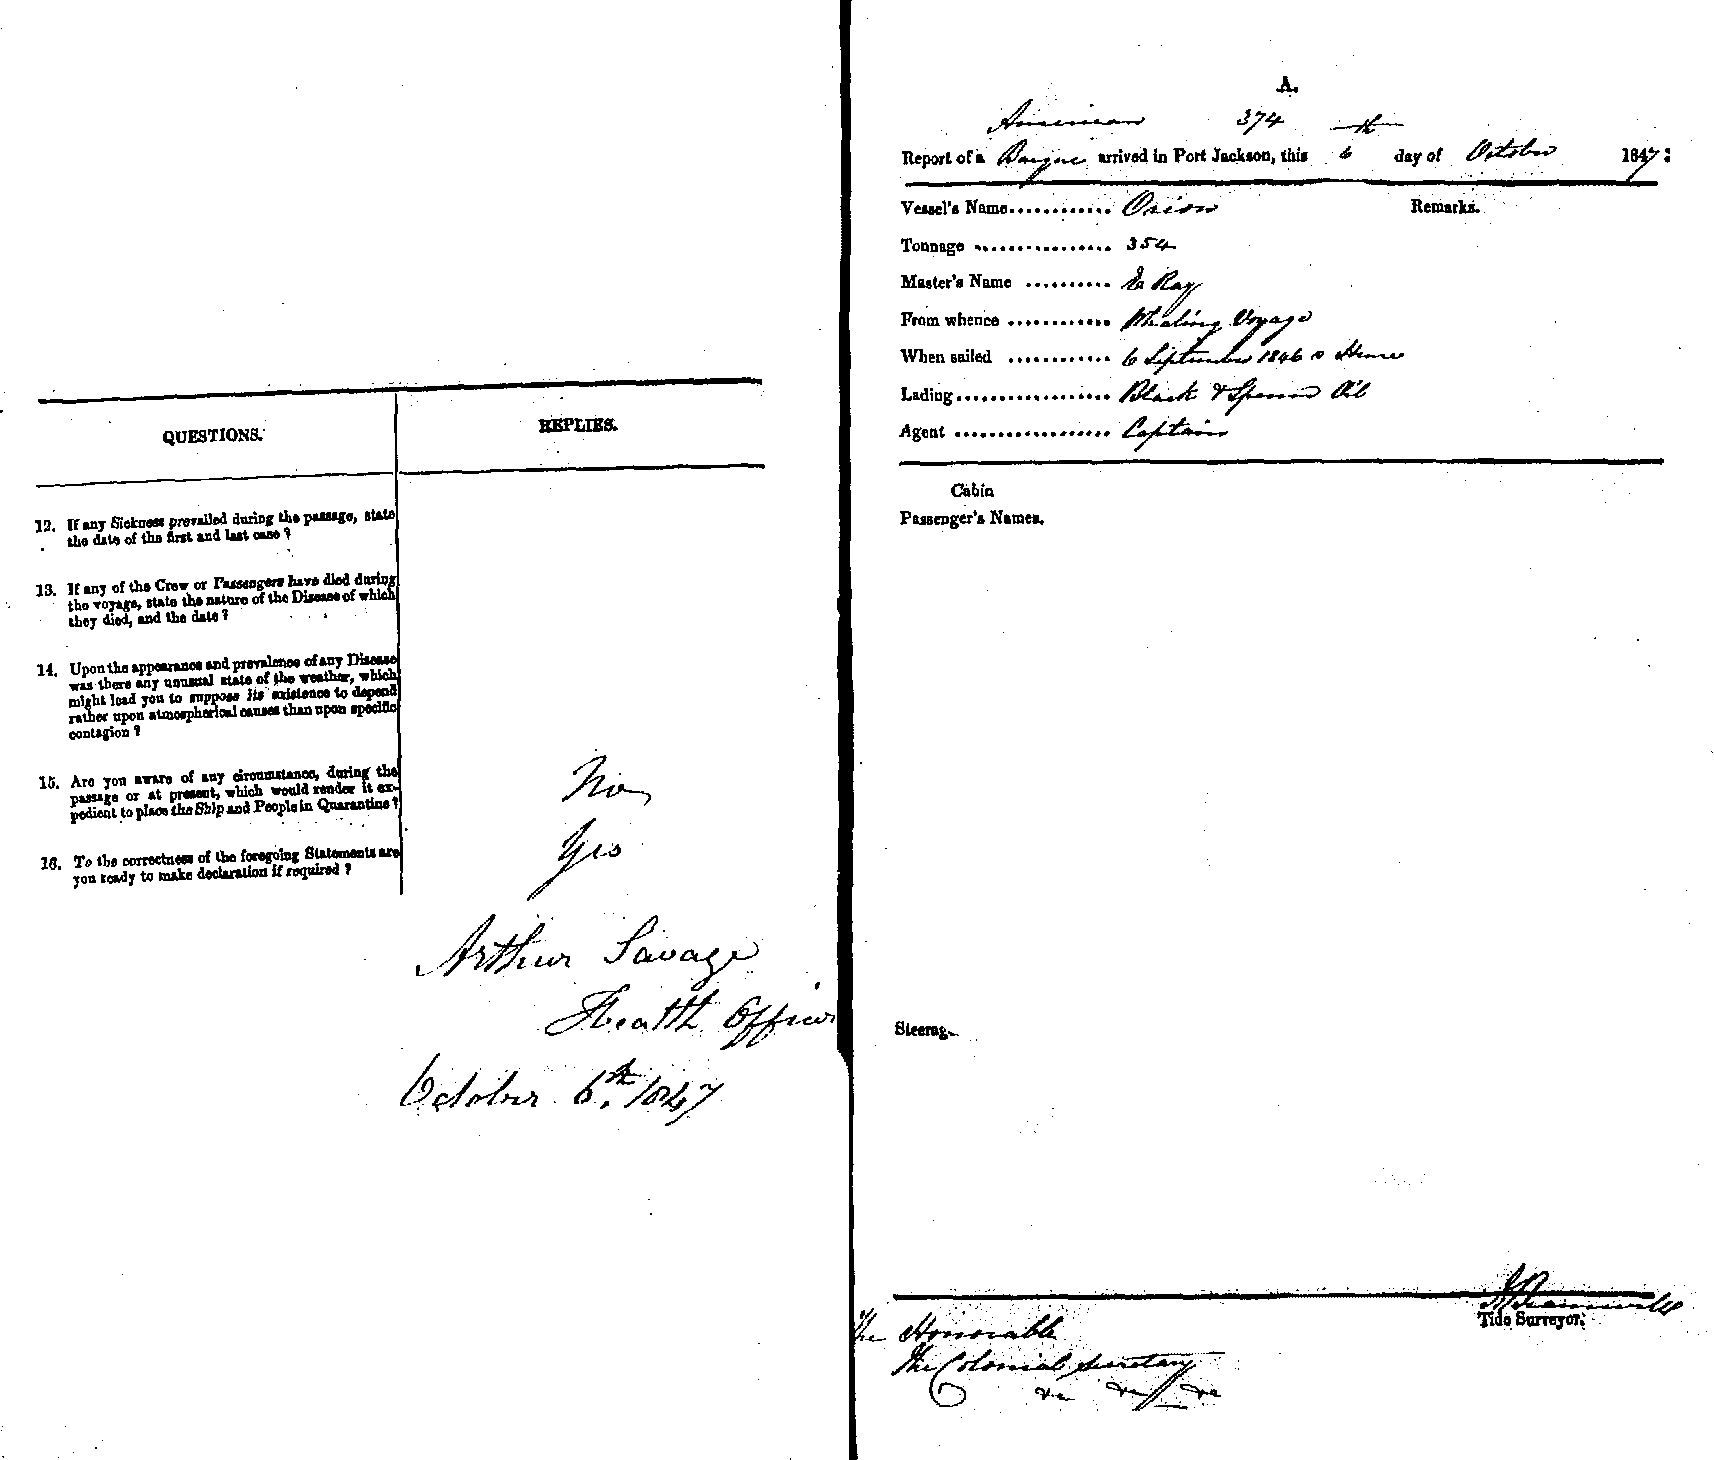 QUESTIONS.
REPLIES.
12. If any Sickness prevailed during the passage, state
the date of the first and last case ?
13. If any of the Crew or Passengers have died during
the voyage, state the nature of the Disease of which
they died, and the date ?
14. Upon the appearance and prevalence of any Disease
was there any unusual state of the weather, which
might lead you to suppose its existence to depend
rather upon atmospherical causes than upon specific
contagion ?
15. Are you aware of any circumstance, during the
passage or at present, which would render it ex-
pedient to place the Ship and People in Quarantine ?
No
16. To the correctness of the foregoing Statements are
you ready to make declaration if required ?
Yes
Arthur Savage
Health Officer
October 6th. 1847
A.
American 374 th
Report of a Barque arrived in Port Jackson, this 6 day of October 1847:
Vessel's Name............ Orion Remarks.
Tonnage ............... 354
Master's Name .......... E Ray
From whence ............ Whaling Voyage
When sailed ............ 6 September 1846
Lading.................. Black & Sperm Oil
Agent .................. Captain
Cabin
Passenger's Names.
Steerag
Tide Surveyor.
The Honorable
The Colonial Secretary
&c &c &c